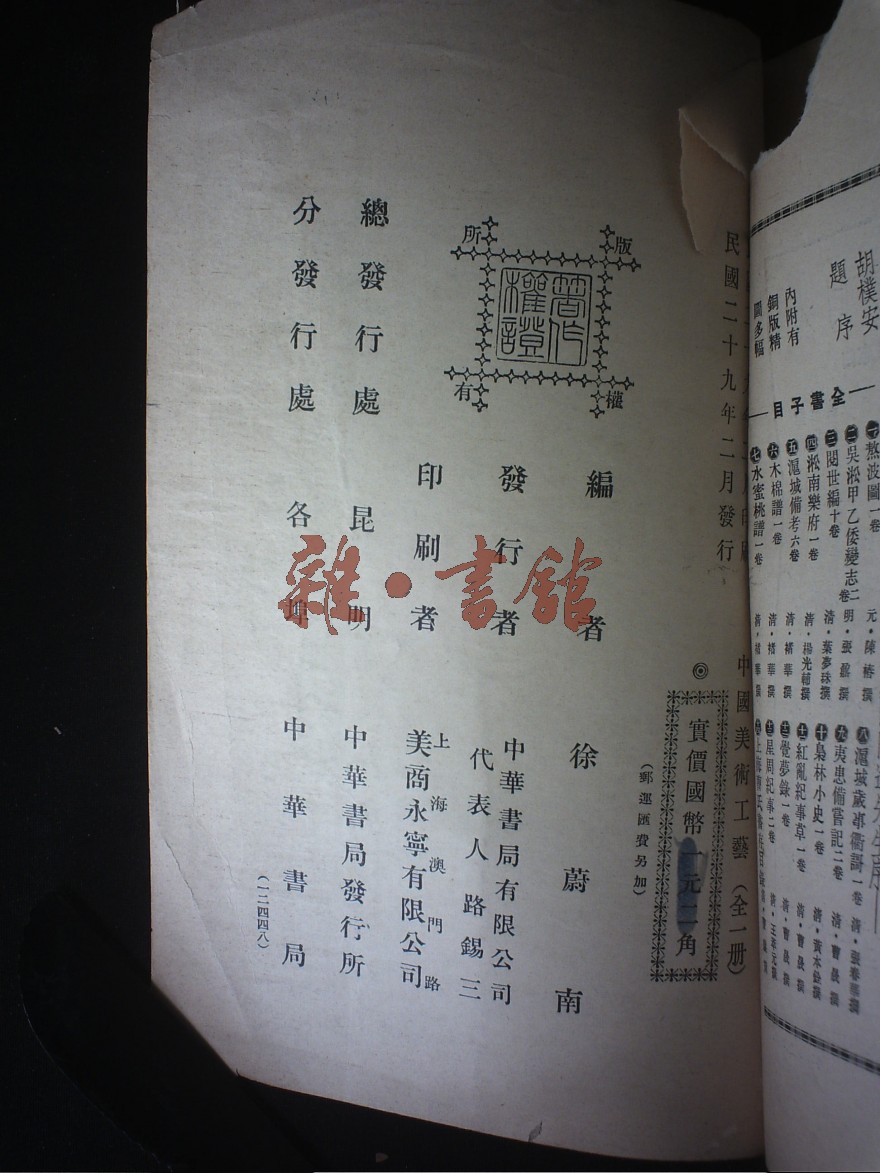 胡樸安
題序
內附有
銅版精
圖多幅
全書子目
㊀熬波圖一卷 元·陳椿撰
㊁吳淞甲乙倭變志二卷 明·張鼐撰
㊂閱世編十卷 清·葉夢珠撰
㊃淞南樂府一卷 清·楊光輔撰
㊄滬城備考六卷 清·褚華撰
㊅木棉譜一卷 清·褚華撰
㊆水蜜桃譜一卷 清·褚華撰
㊇滬城歲事衢謌一卷 清·張春華撰
㊈夷患備嘗記二卷 清·曹晟撰
㊉梟林小史一卷 清·黃本銓撰
紅亂紀事草一卷 清·曹晟撰
覺夢錄一卷 清·曹晟撰
星周紀事二卷 清·王萃元撰
民國二十九年二月發行
中國美術工藝（全一册）
◎實價國幣一元二角
（郵運匯費另加）
版權所有
著作權證
編者 徐蔚南
發行者 中華書局有限公司
代表人 路錫三
印刷者 上海澳門路
美商永寧有限公司
總發行處 昆明 中華書局發行所
分發行處 各埠 中華書局
（一二四四八）
雜·書館